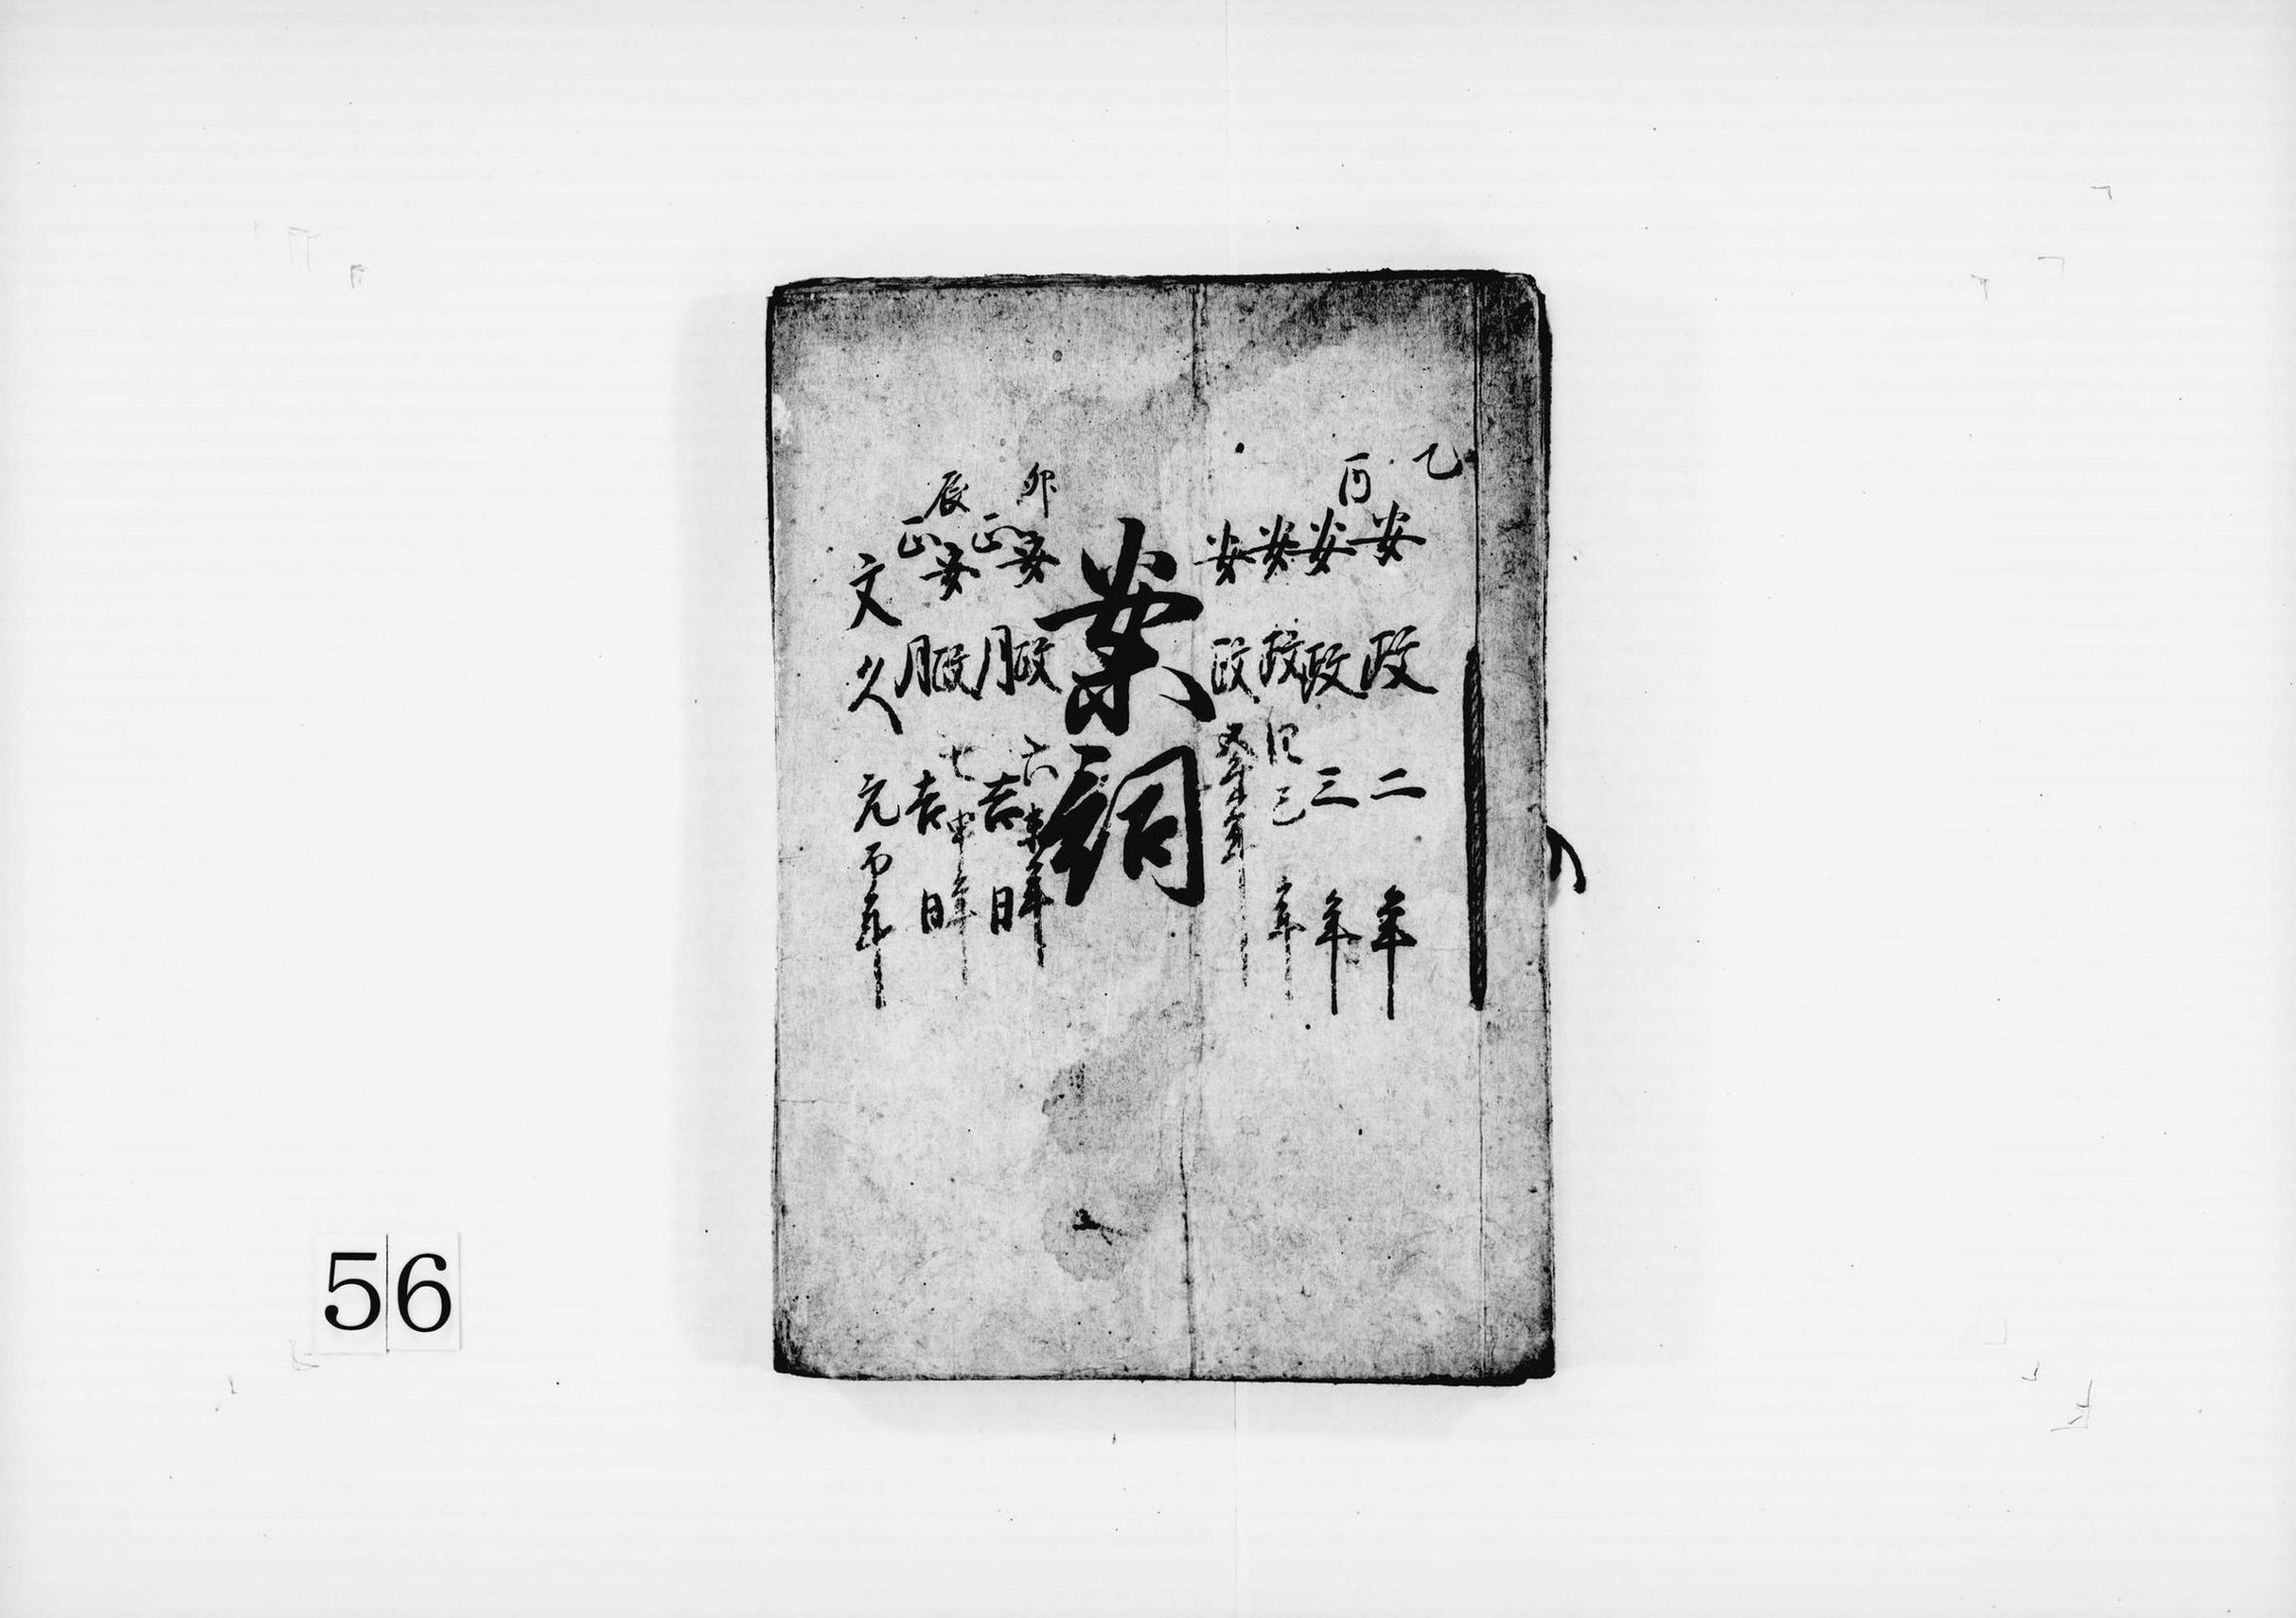 乙
安政二年
丙
安政三年
安政四巳年
安政五午年
案詞
卯
安政六未年
正月吉日
辰
安政七申年
正月吉日
文久元酉年
56